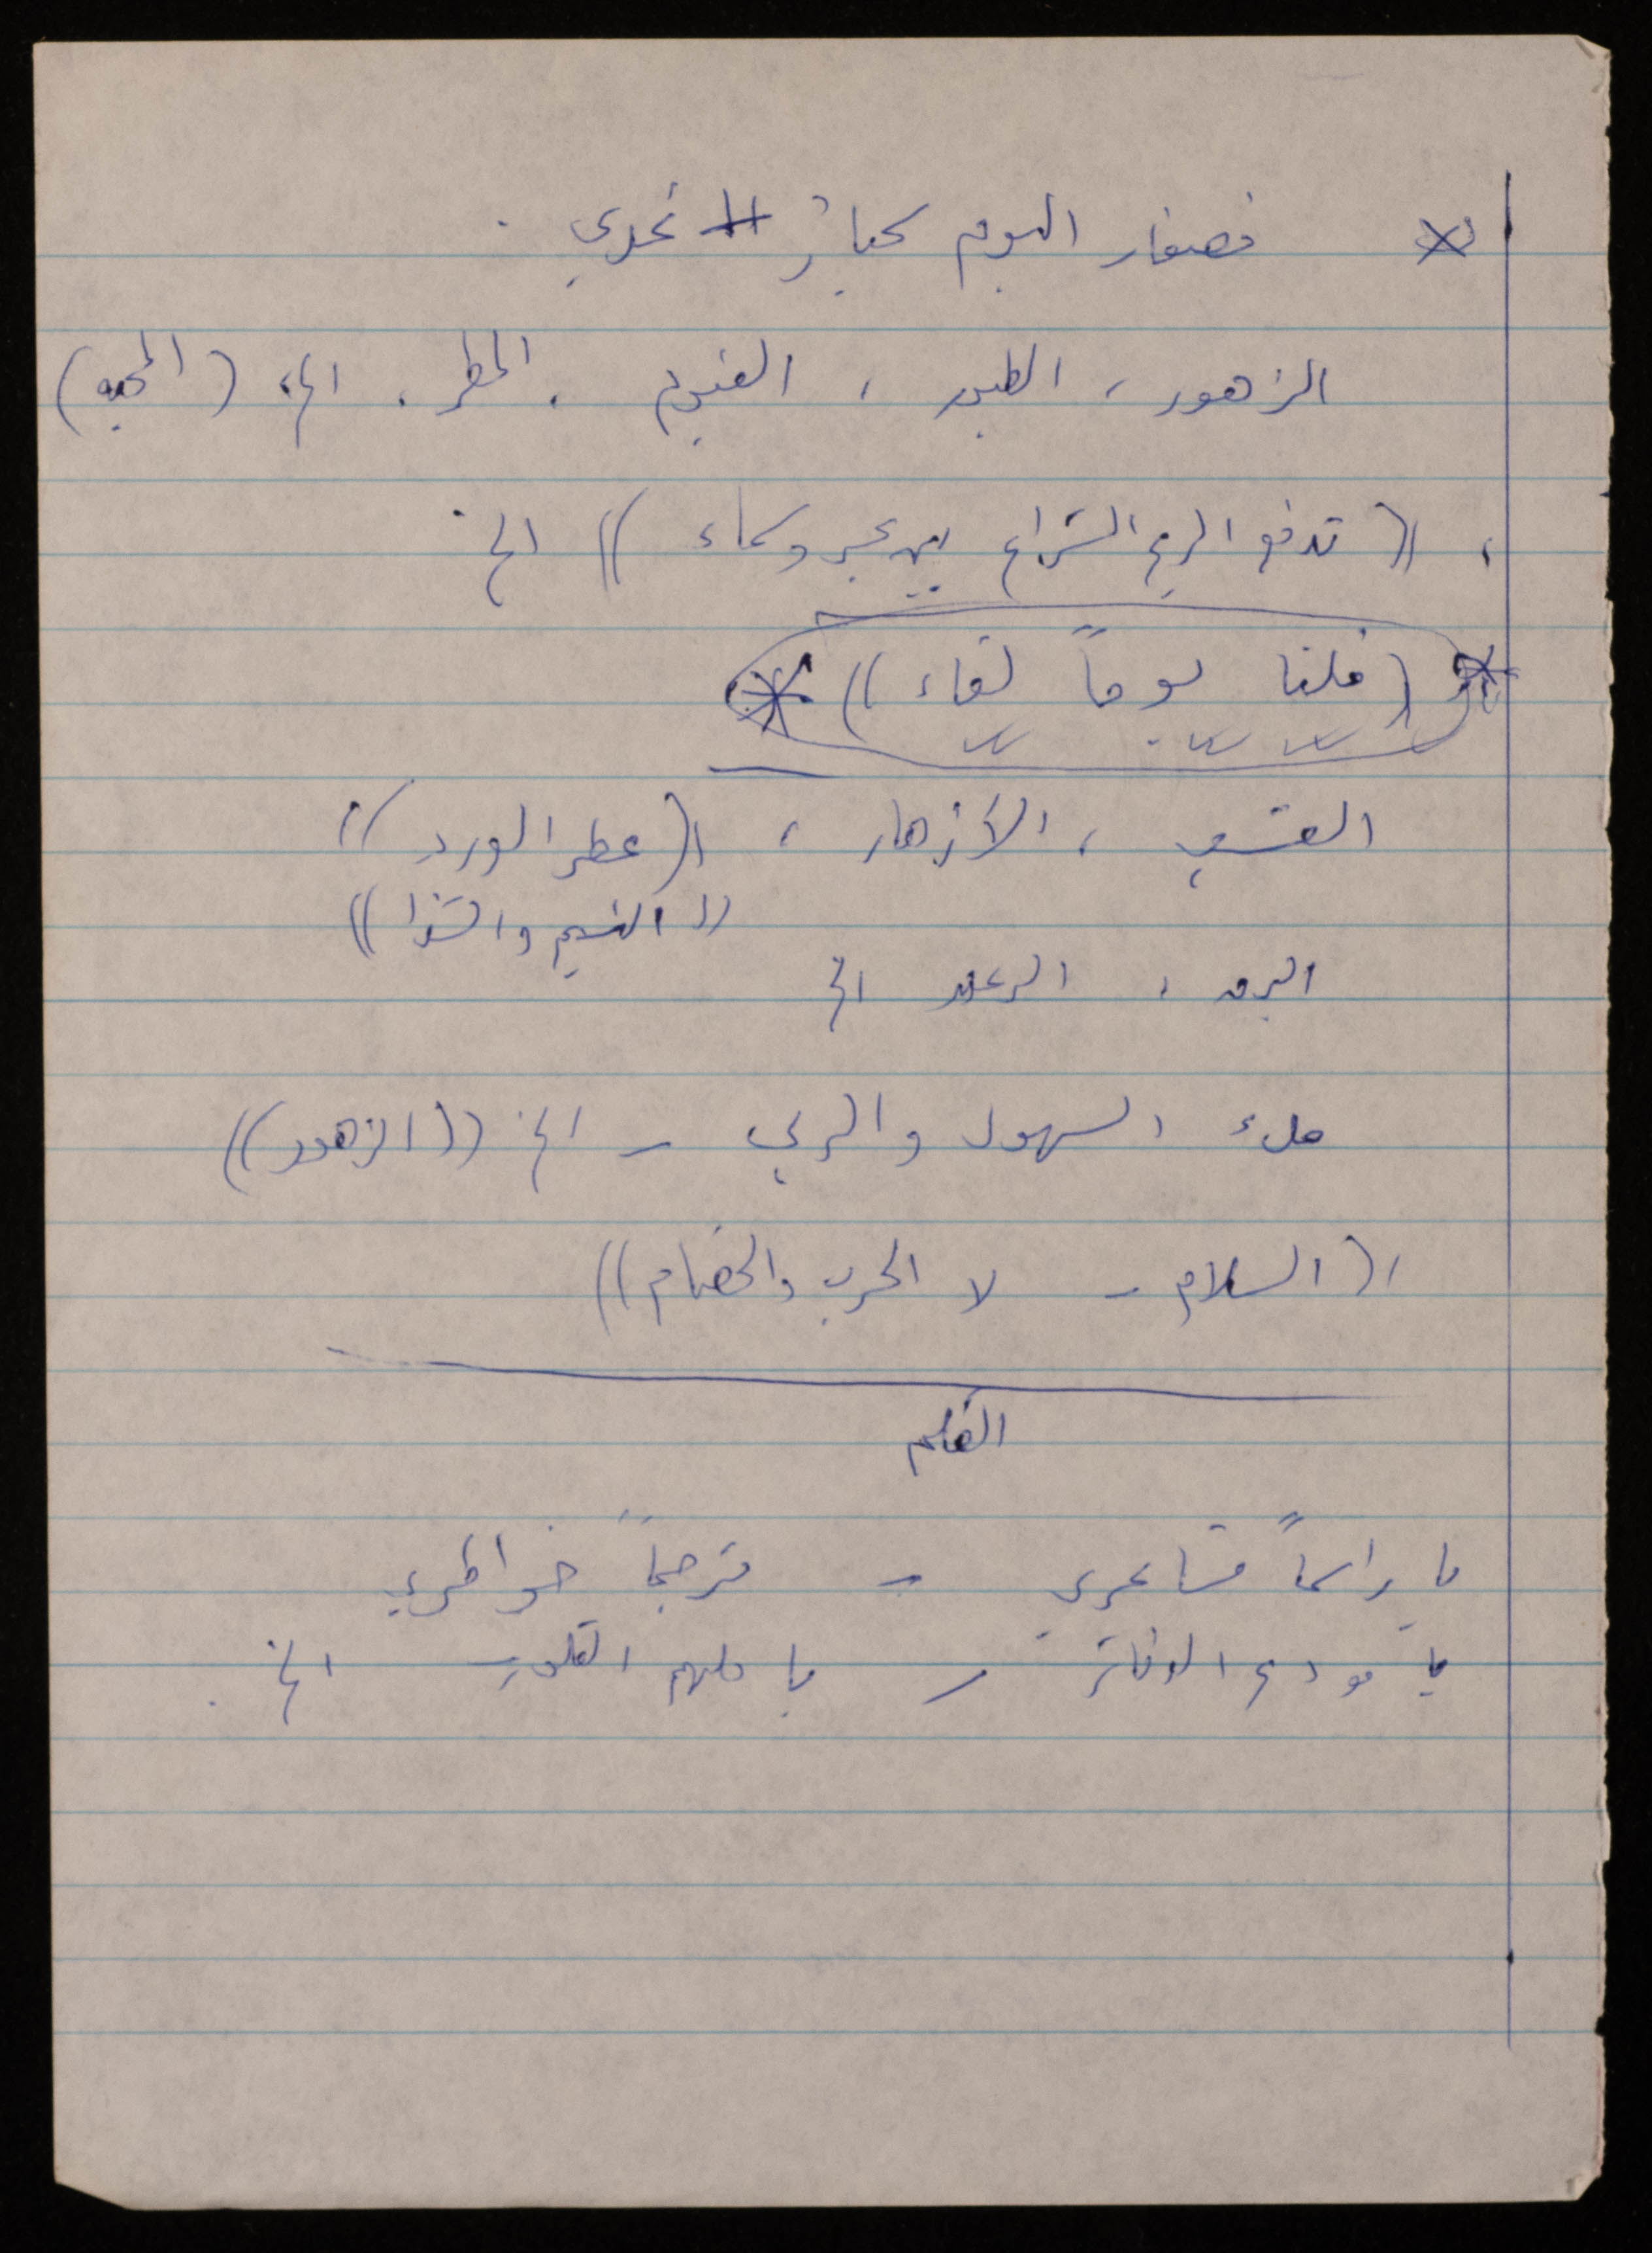 * فصغار اليوم كبار غدي .
الزهور ، الطيور ، الغيوم ، المطر ، الخ ، (المحبه)
، (( تدفع الريح الشراع بين بحر وسماء )) الخ
* (( فلنا يوماً لقاء )) *
العشب ، الأزهار ، (( عطر الورد ))
(( النسيم والشذا ))
البرق ، الرعد الخ
ملء السهول والربى – الخ (( الزهور ))
(( السلام – لا الحرب والخصام ))
القلم
يا راسماً مشاعري – مترجماً خواطري
يا مودع الدفاتر – يا ملهم القلوب الخ .